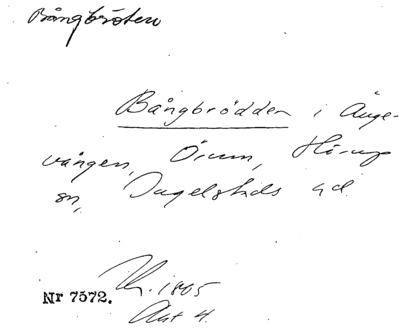 Bångbröten
Bångbrödden i Änge-
vången, Örum, Hörup
sn, Ingelstads hd.
Nr 7572. Kr. 1805
Akt 4.